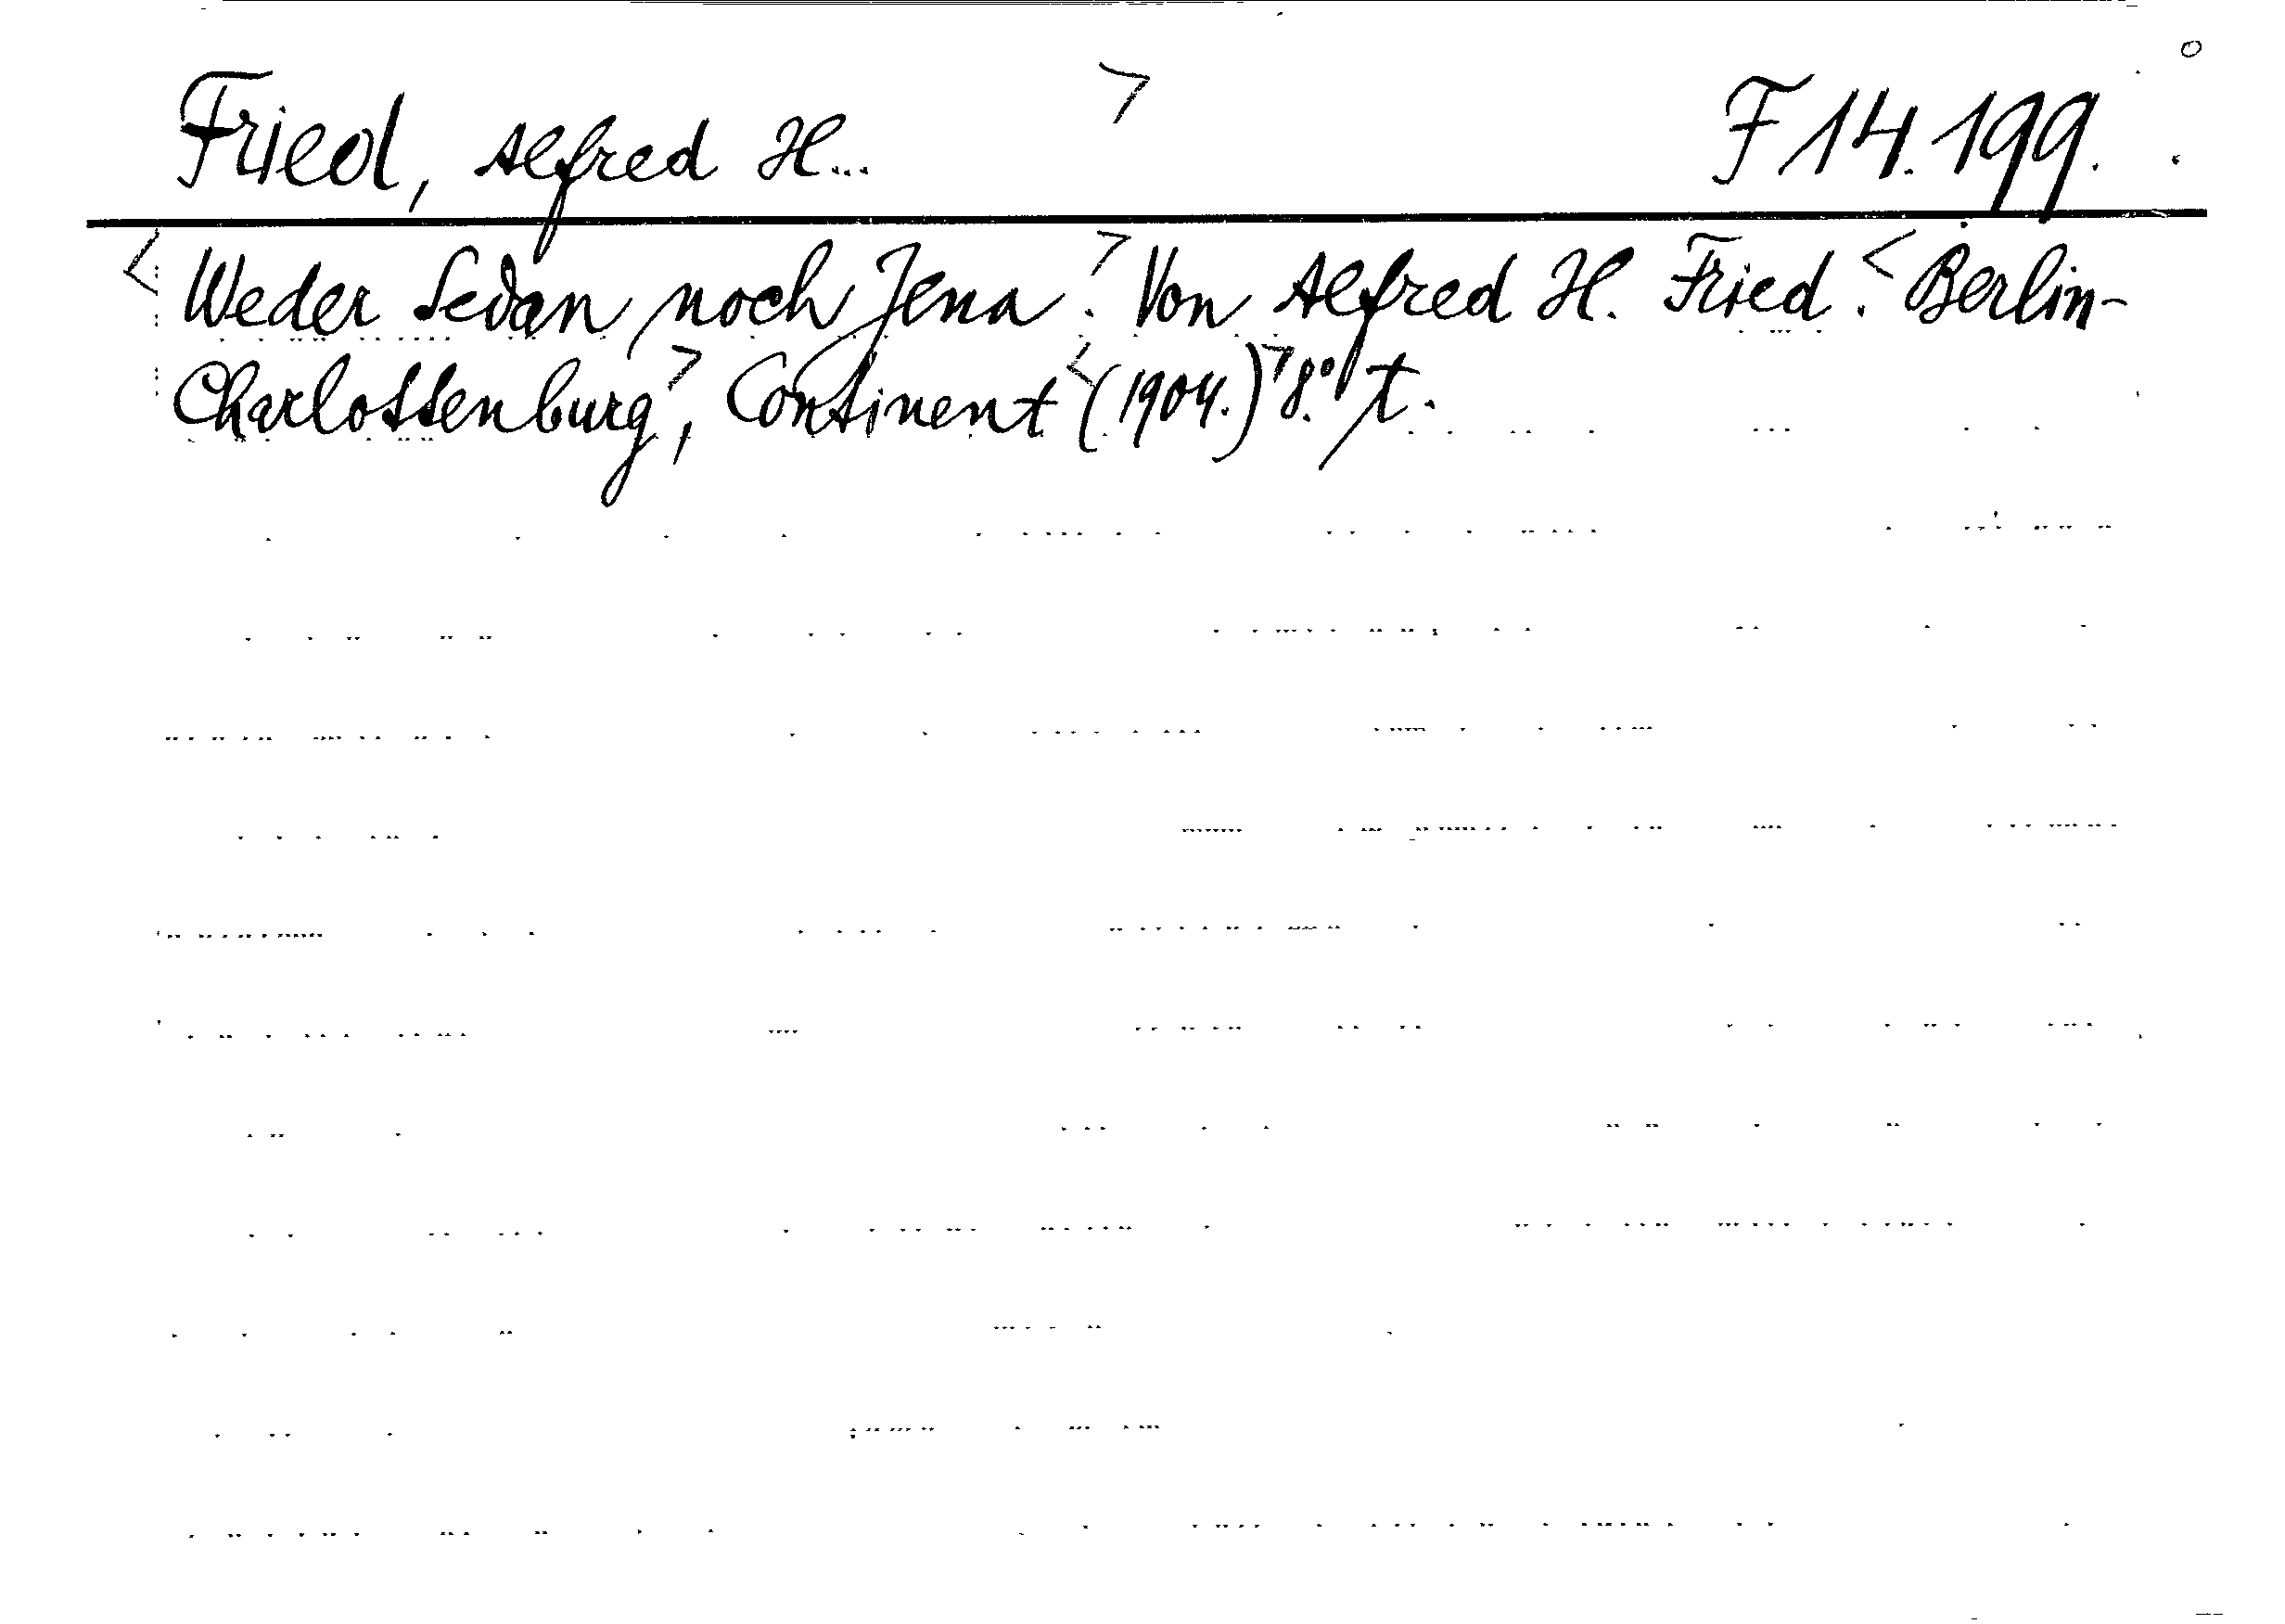 Fried, Alfred H... > F 14.199.
< Weder Sedan noch Jena.> Von Alfred H. Fried.< Berlin-
Charlottenburg>, Continent <(1904.)> 8.° t.